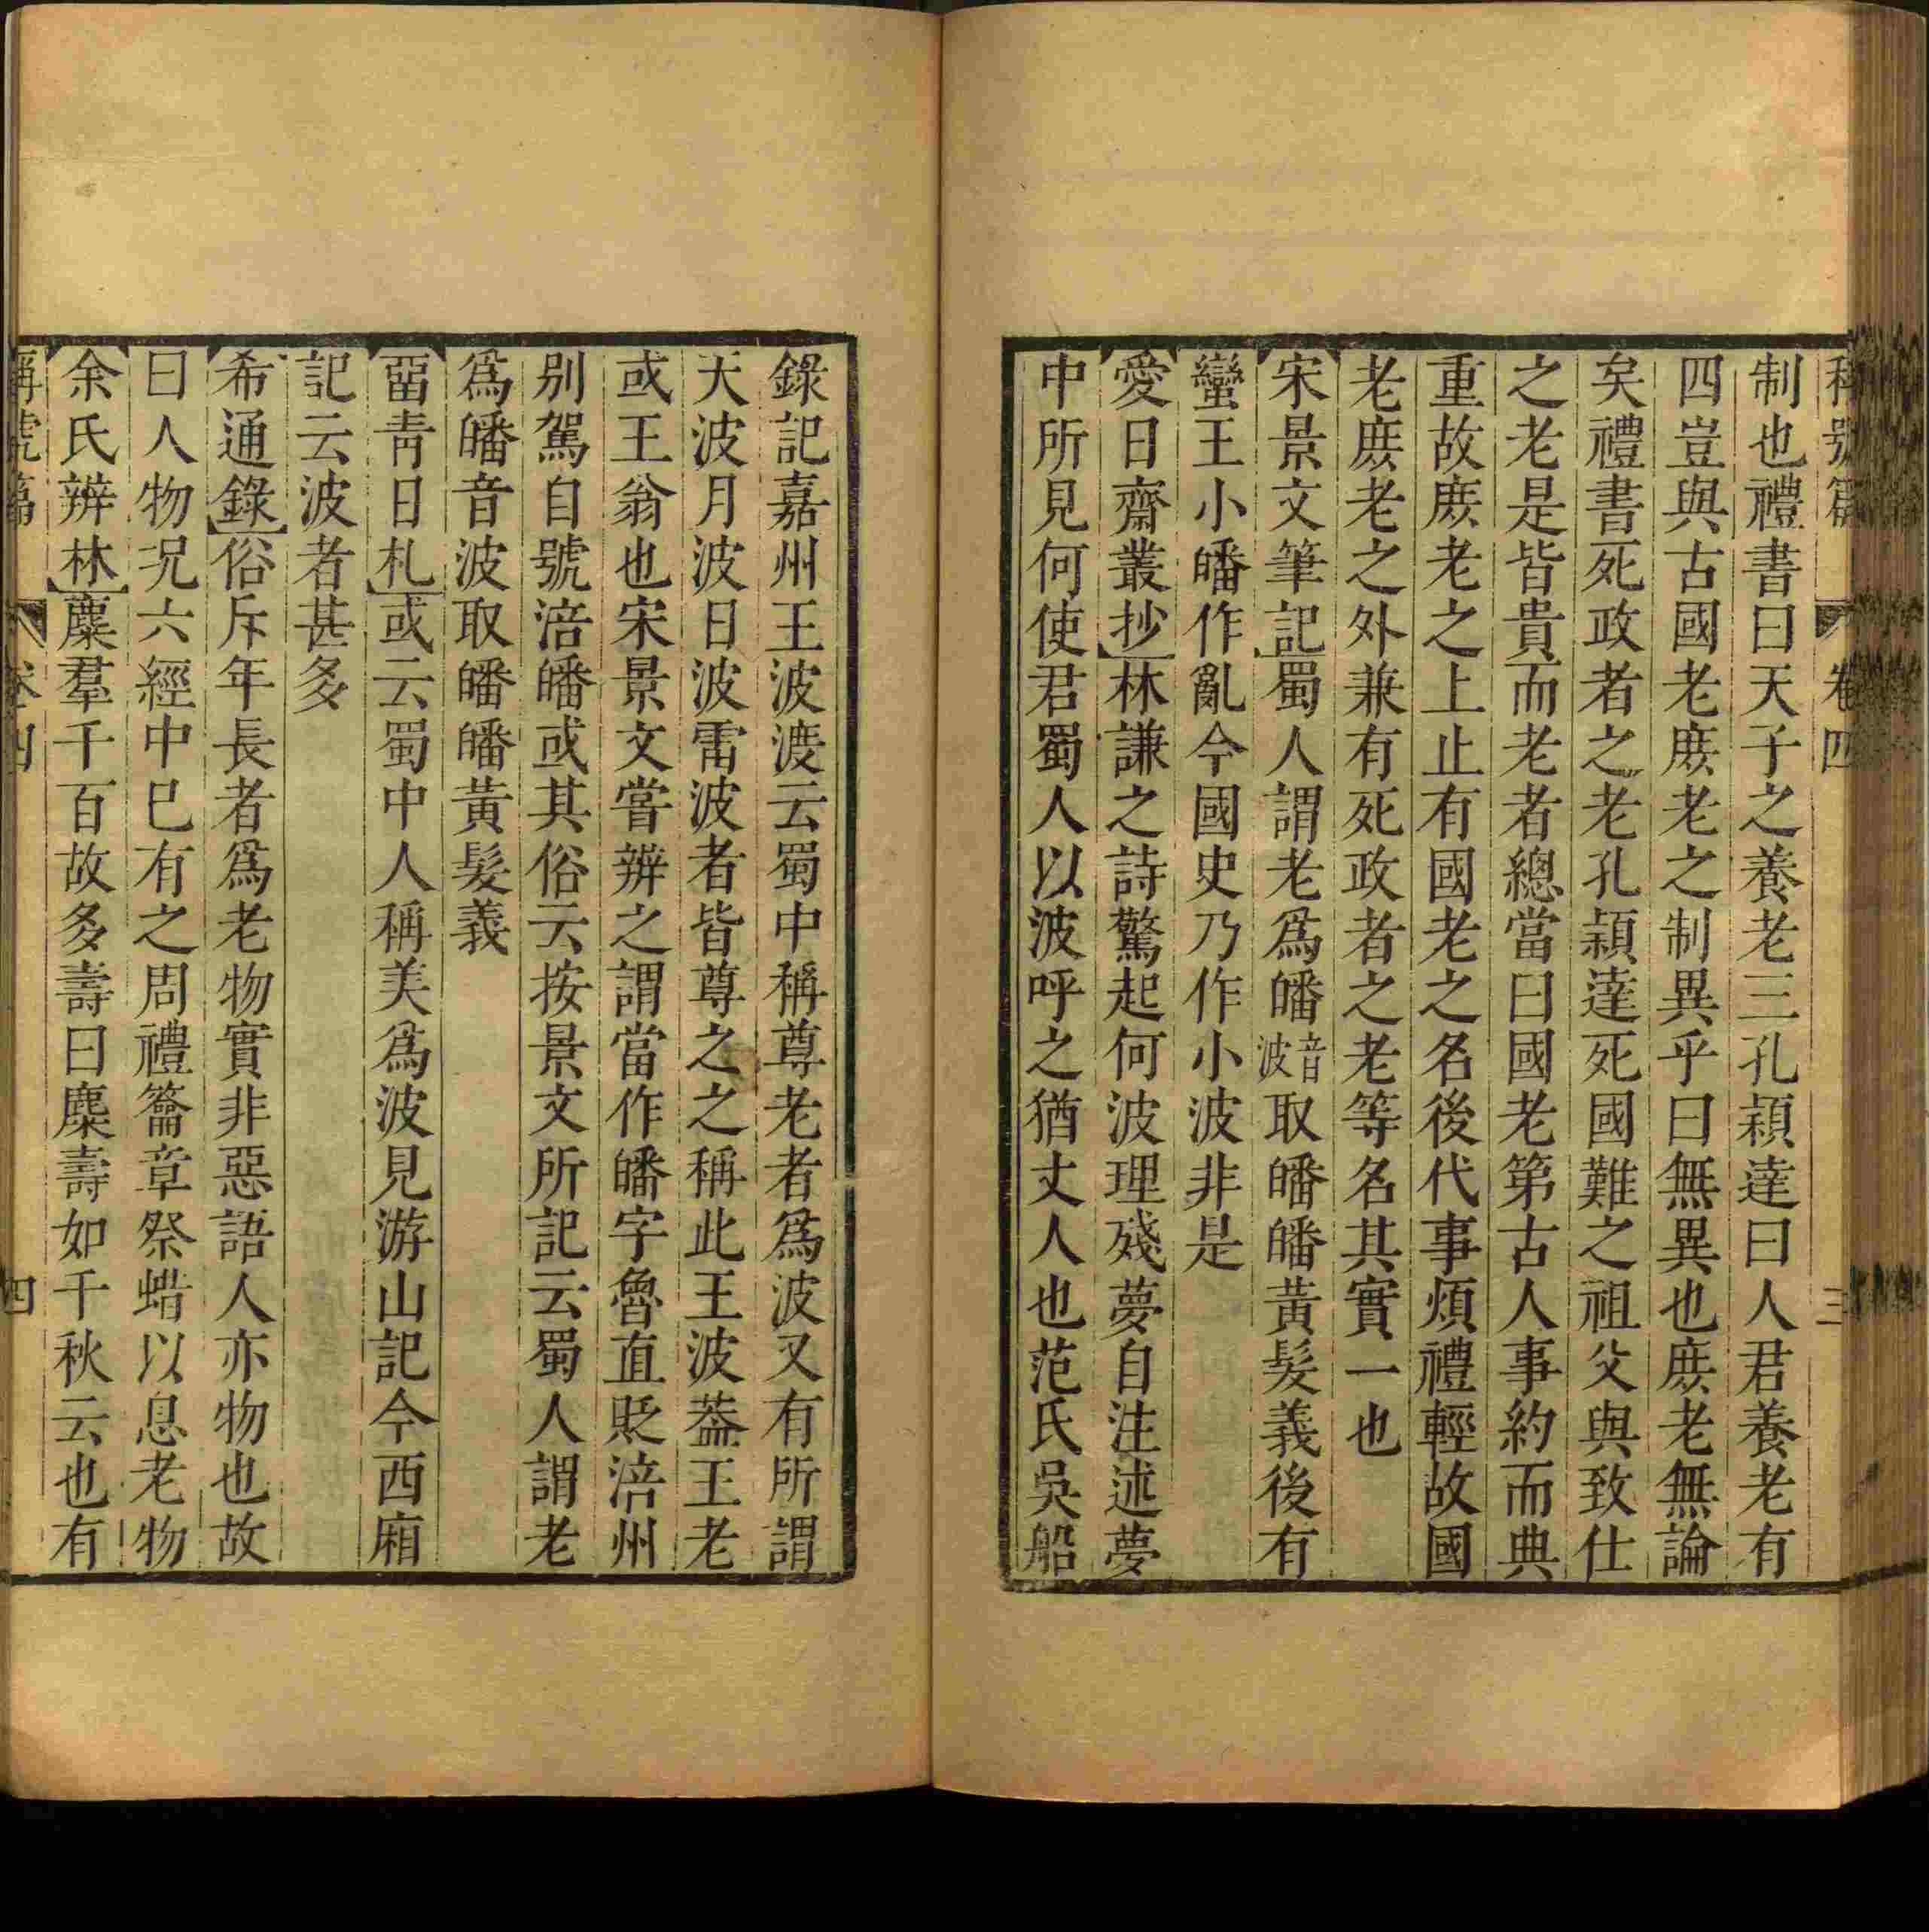 稱號篇 卷四 三
制也禮書曰天子之養老三孔穎達曰人君養老有
四豈與古國老庶老之制異乎曰無異也庶老無論
矣禮書死政者之老孔穎達死國難之祖父與致仕
之老是皆貴而老者總當曰國老第古人事約而典
重故庶老之上止有國老之名後代事煩禮輕故國
老庶老之外兼有死政者之老等名其實一也
宋景文筆記蜀人謂老爲皤音波取皤皤黃髮義後有
蠻王小皤作亂今國史乃作小波非是
愛日齋叢抄林謙之詩驚起何波理殘夢自注述夢
中所見何使君蜀人以波呼之猶丈人也范氏吳船
錄記嘉州王波渡云蜀中稱尊老者爲波又有所謂
天波月波日波雷波者皆尊之之稱此王波葢王老
或王翁也宋景文嘗辨之謂當作皤字魯直貶涪州
別駕自號涪皤或其俗云按景文所記云蜀人謂老
爲皤音波取皤皤黃髮義
畱青日札或云蜀中人稱美爲波見游山記今西廂
記云波者甚多
希通錄俗斥年長者爲老物實非惡語人亦物也故
曰人物況六經中已有之周禮籥章祭蜡以息老物
余氏辨林麋羣千百故多壽曰麋壽如千秋云也有
稱號篇 卷四 四